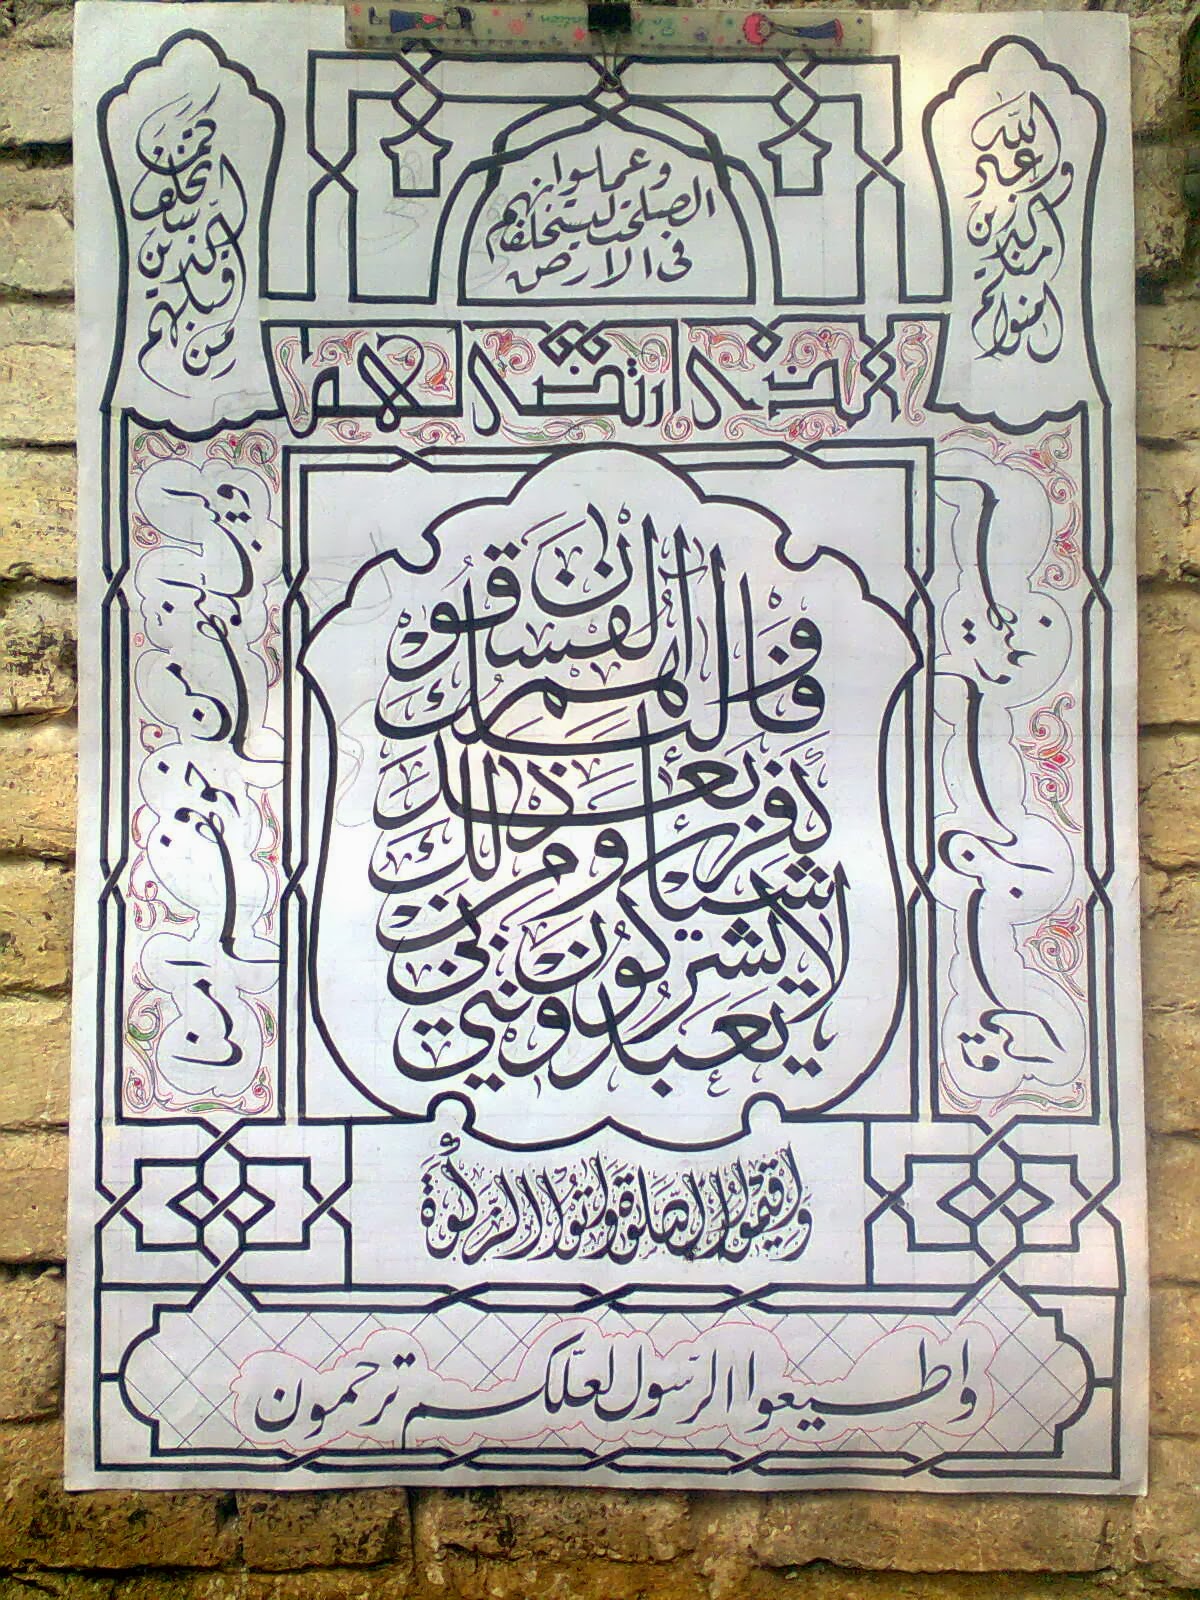 وعد الله
الذين
امنوا منكم
وعملوا
الصلحت ليستخلفنهم
فى الارض
كما استخلف
الذين
من قبلهم
وليمكنن لهم دينهم
الذى ارتضى لهم
وليبدلنهم من بعد خوفهم امنا
يعبدوننى
لا يشركون بى
شيئا ومن
كفر بعد ذلك
فاولئك هم
الفسقون
واقيموا الصلوة واتوا الزكوة
واطيعوا الرسول لعلكم ترحمون